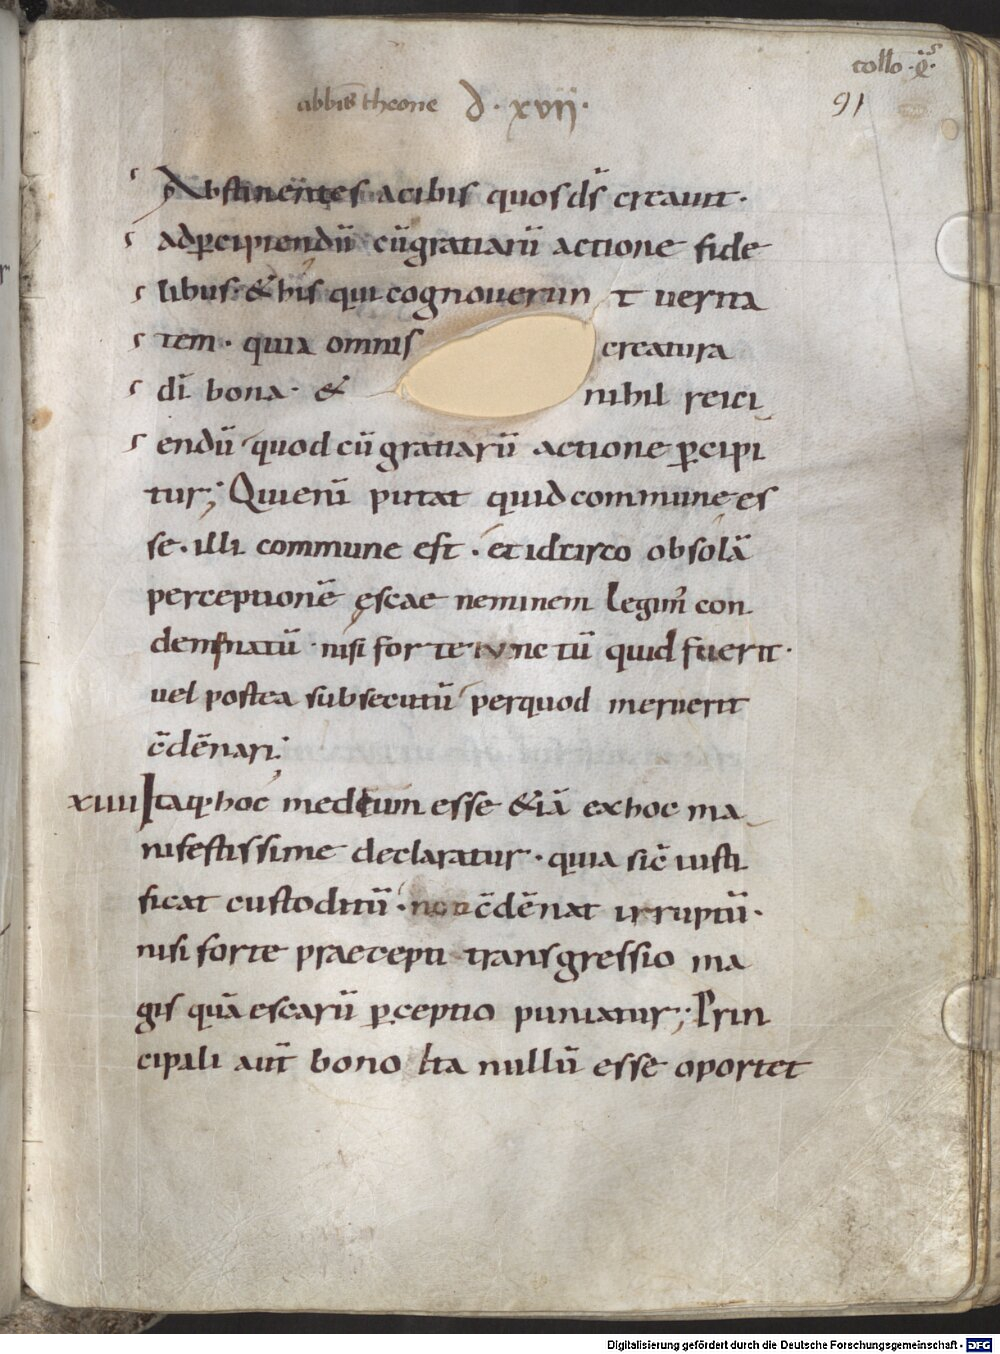 collo·q̄s·
abbis theone d·xvii·
91
Abstinentes a cibis quos ds̄ creauit·
ad ꝑcipiendū cū gratiarū actione fide
libus· & his qui cognouerun t uerita
tem· quia omnis creatura
dī bona· & nihil reici
endū quod cū gratiarū actione ꝑcipi
tur; Qui enī putat quid commune es
se· illi commune est· et idcirco ob solā
perceptionē ęscae neminem legim̄ con
demnatū· nisi forte iunctū quid fuerit·
uel postea subsecutū per quod meruerit
c̄dēnari;
xiiii Itaq· hoc medium esse &iā ex hoc ma
nifestissime declaratur· quia sic̄ iusti
ficat custoditū· non c̄dēnat irruptū·
nisi forte praecepti transgressio ma
gis quā escarū ꝑceptio puniatur; Prin
cipali aut̄ bono Ita nullū esse oportet
Digitalisierung gefördert durch die Deutsche Forschungsgemeinschaft - DFG